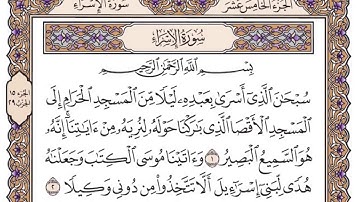 الجزء الخامس عشر
سورة الإسراء
سُورَةُ الإِسْرَاءِ
بِسْمِ اللَّهِ الرَّحْمَٰنِ الرَّحِيمِ
سُبْحَانَ الَّذِي أَسْرَىٰ بِعَبْدِهِ لَيْلًا مِنَ الْمَسْجِدِ الْحَرَامِ إِلَى
الْمَسْجِدِ الْأَقْصَا الَّذِي بَارَكْنَا حَوْلَهُ لِنُرِيَهُ مِنْ ءَايَاتِنَا إِنَّهُ
هُوَ السَّمِيعُ الْبَصِيرُ ١ وَءَاتَيْنَا مُوسَى الْكِتَابَ وَجَعَلْنَاهُ
هُدًى لِبَنِي إِسْرَاءِيلَ أَلَّا تَتَّخِذُوا مِنْ دُونِي وَكِيلًا ٢
الجزء ١٥
الحزب ٢٩